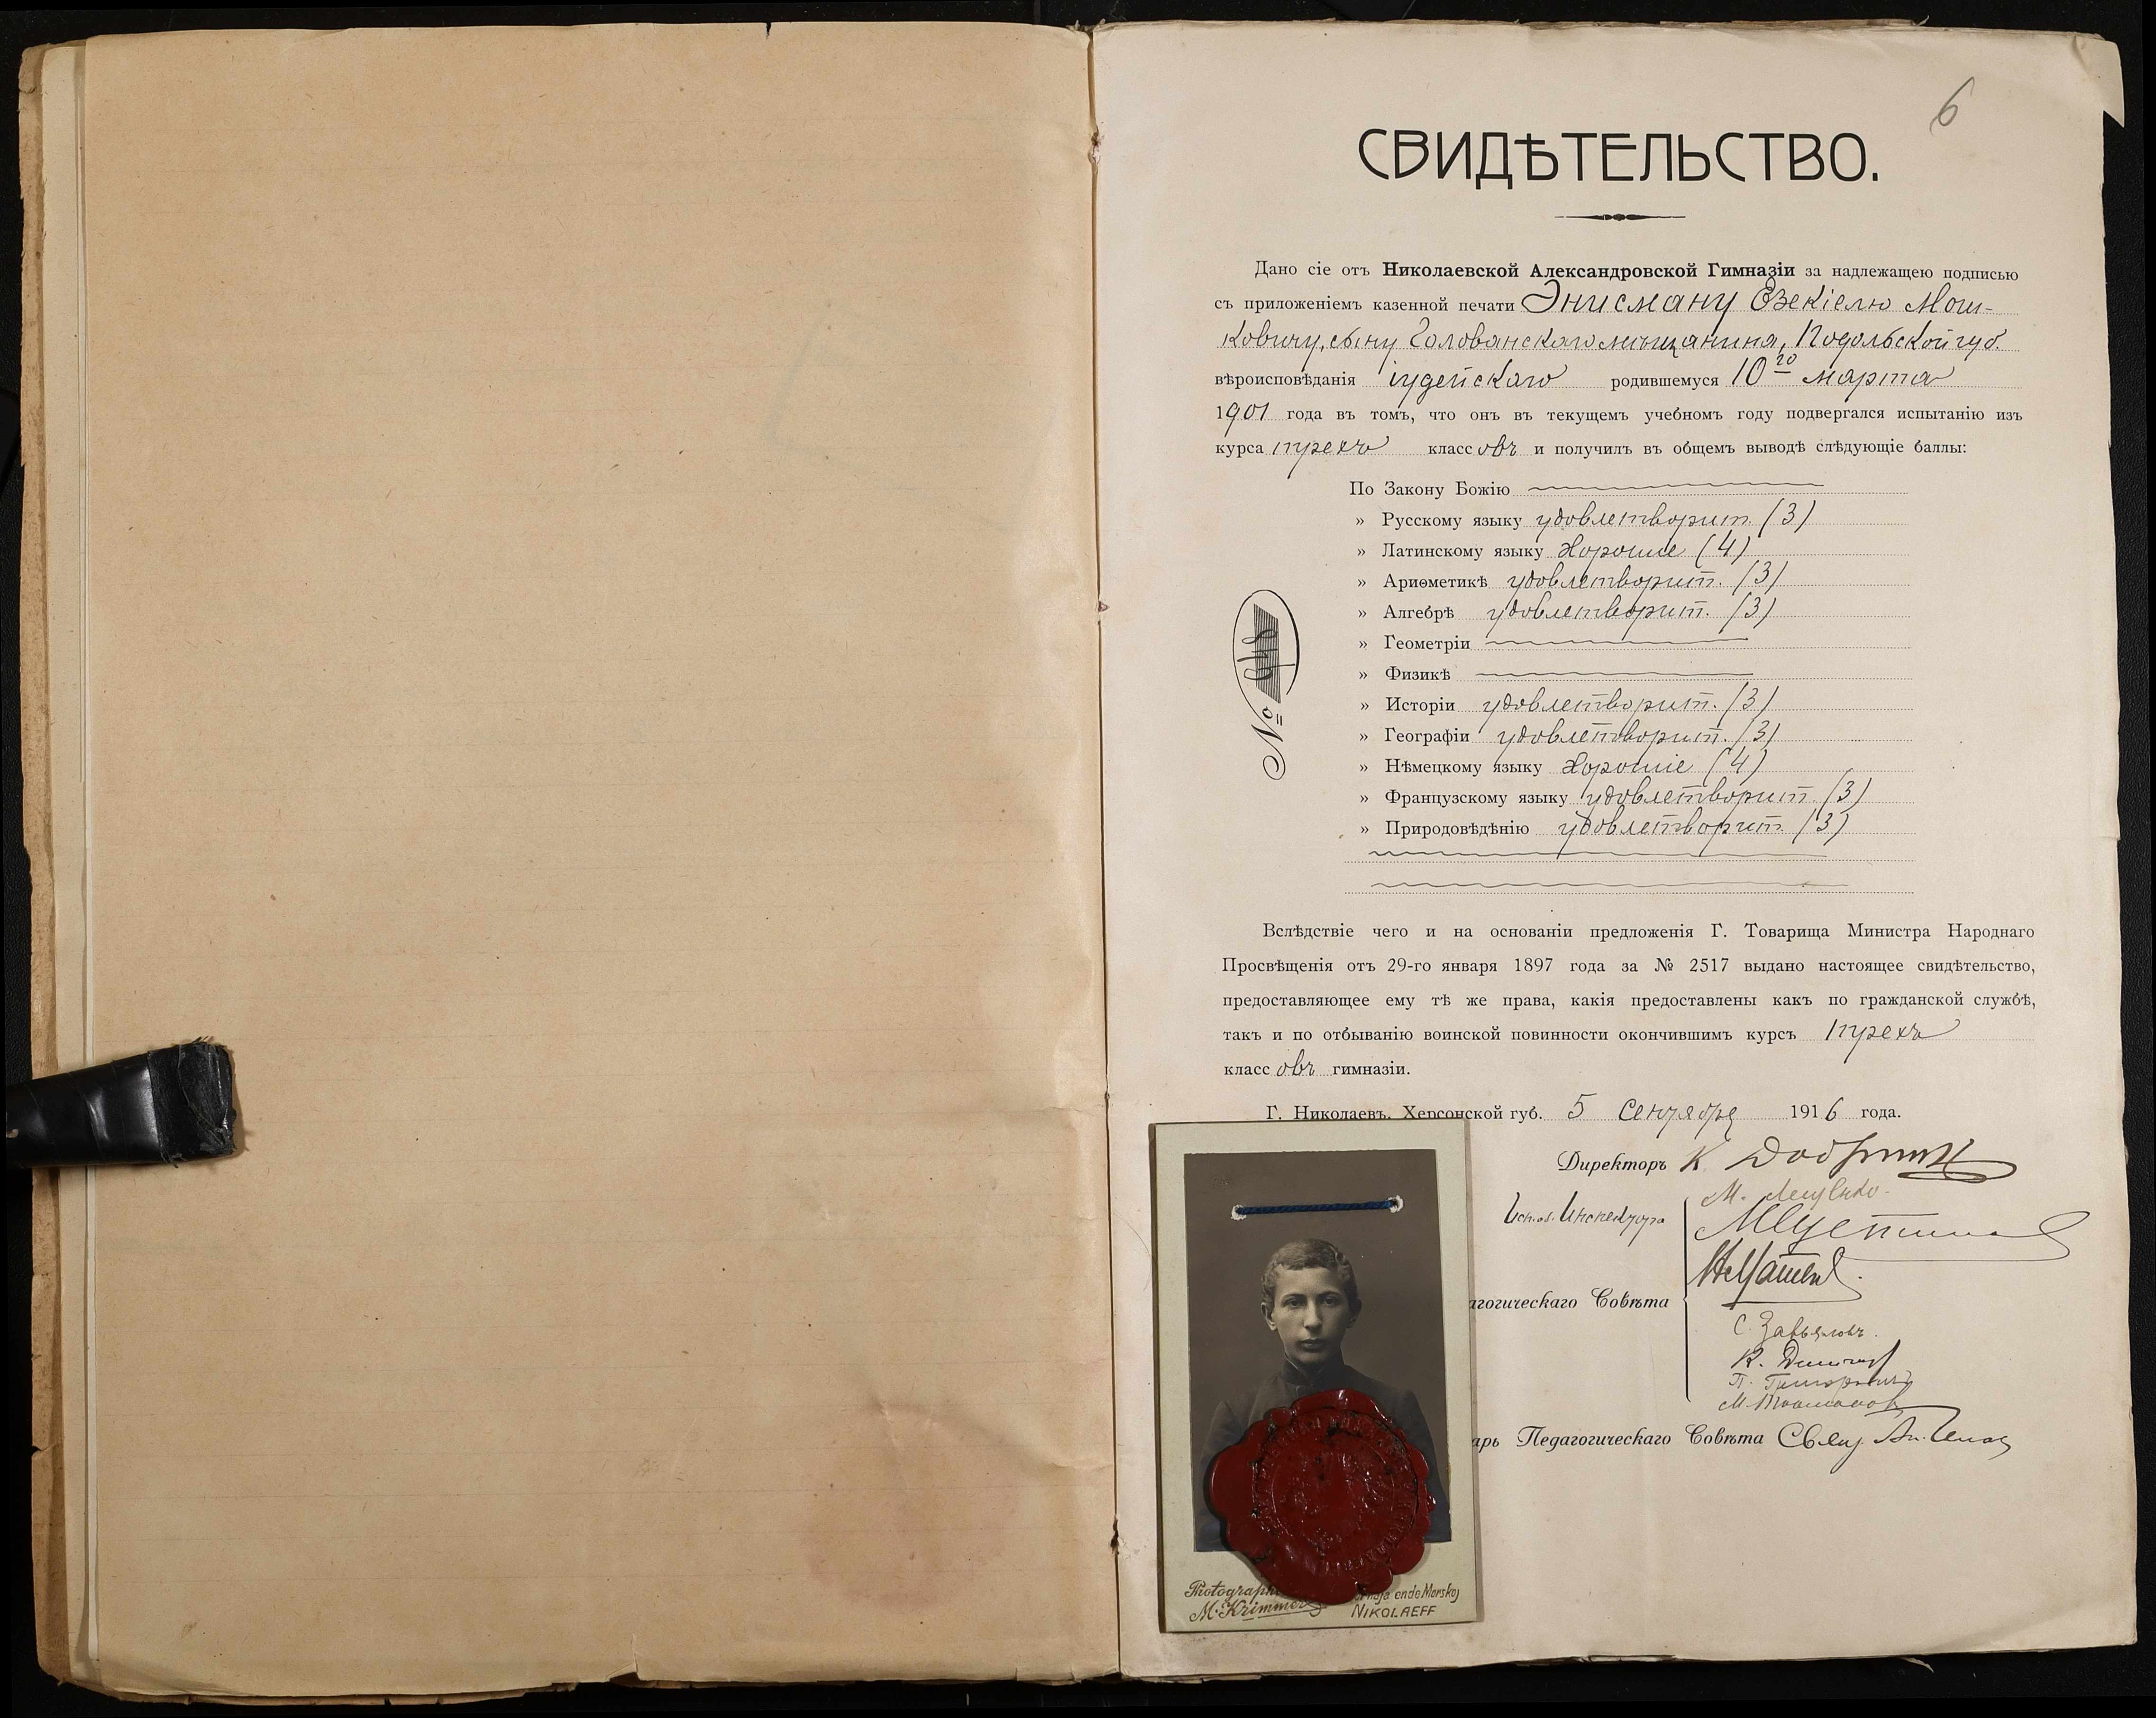 6
СВИДѢТЕЛЬСТВО.
Дано сіе отъ Николаевской Александровской Гимназіи за надлежащею подписью
съ приложеніемъ казенной печати Энисману Езекіелю Мош-
ковичу, сыну Голованскаго мѣщанина, Подольской губ.
вѣроисповѣданія іудейскаго родившемуся 10го марта
1901 года въ томъ, что онъ въ текущемъ учебномъ году подвергался испытанію изъ
курса трехъ классовъ и получилъ въ общемъ выводѣ слѣдующіе баллы:
По Закону Божію
» Русскому языку удовлетворит. (3)
» Латинскому языку хорошіе (4)
» Ариѳметикѣ удовлетворит. (3)
» Алгебрѣ удовлетворит. (3)
» Геометріи
» Физикѣ
» Исторіи удовлетворит. (3)
» Географіи удовлетворит. (3)
» Нѣмецкому языку хорошіе (4)
» Французскому языку удовлетворит. (3)
» Природовѣдѣнію удовлетворит. (3)
№
Вслѣдствіе чего и на основаніи предложенія Г. Товарища Министра Народнаго
Просвѣщенія отъ 29-го января 1897 года за № 2517 выдано настоящее свидѣтельство,
предоставляющее ему тѣ же права, какія предоставлены какъ по гражданской службѣ,
такъ и по отбыванію воинской повинности окончившимъ курсъ трехъ
классовъ гимназіи.
Г. Николаевъ, Херсонской губ. 5 Сентября 1916 года.
Директоръ К.
Исп. об. Инспектора
М.
агогическаго Совѣта
С. Завьяловъ.
К.
П.
М.
арь Педагогическаго Совѣта Свящ.
Photograph
M. Krimmer
ende Morskoj
NIKOLAEFF